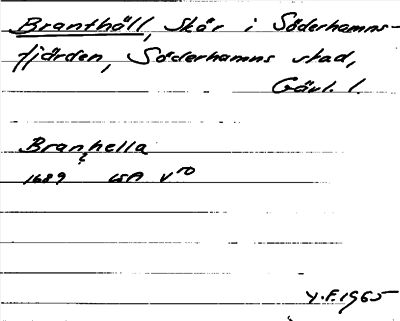 Branthäll, skär i Söderhamns-
fjärden, Söderhamns stad,
Gävl. l.
Branhella
1689 LSA V 10
Y.F. 1965